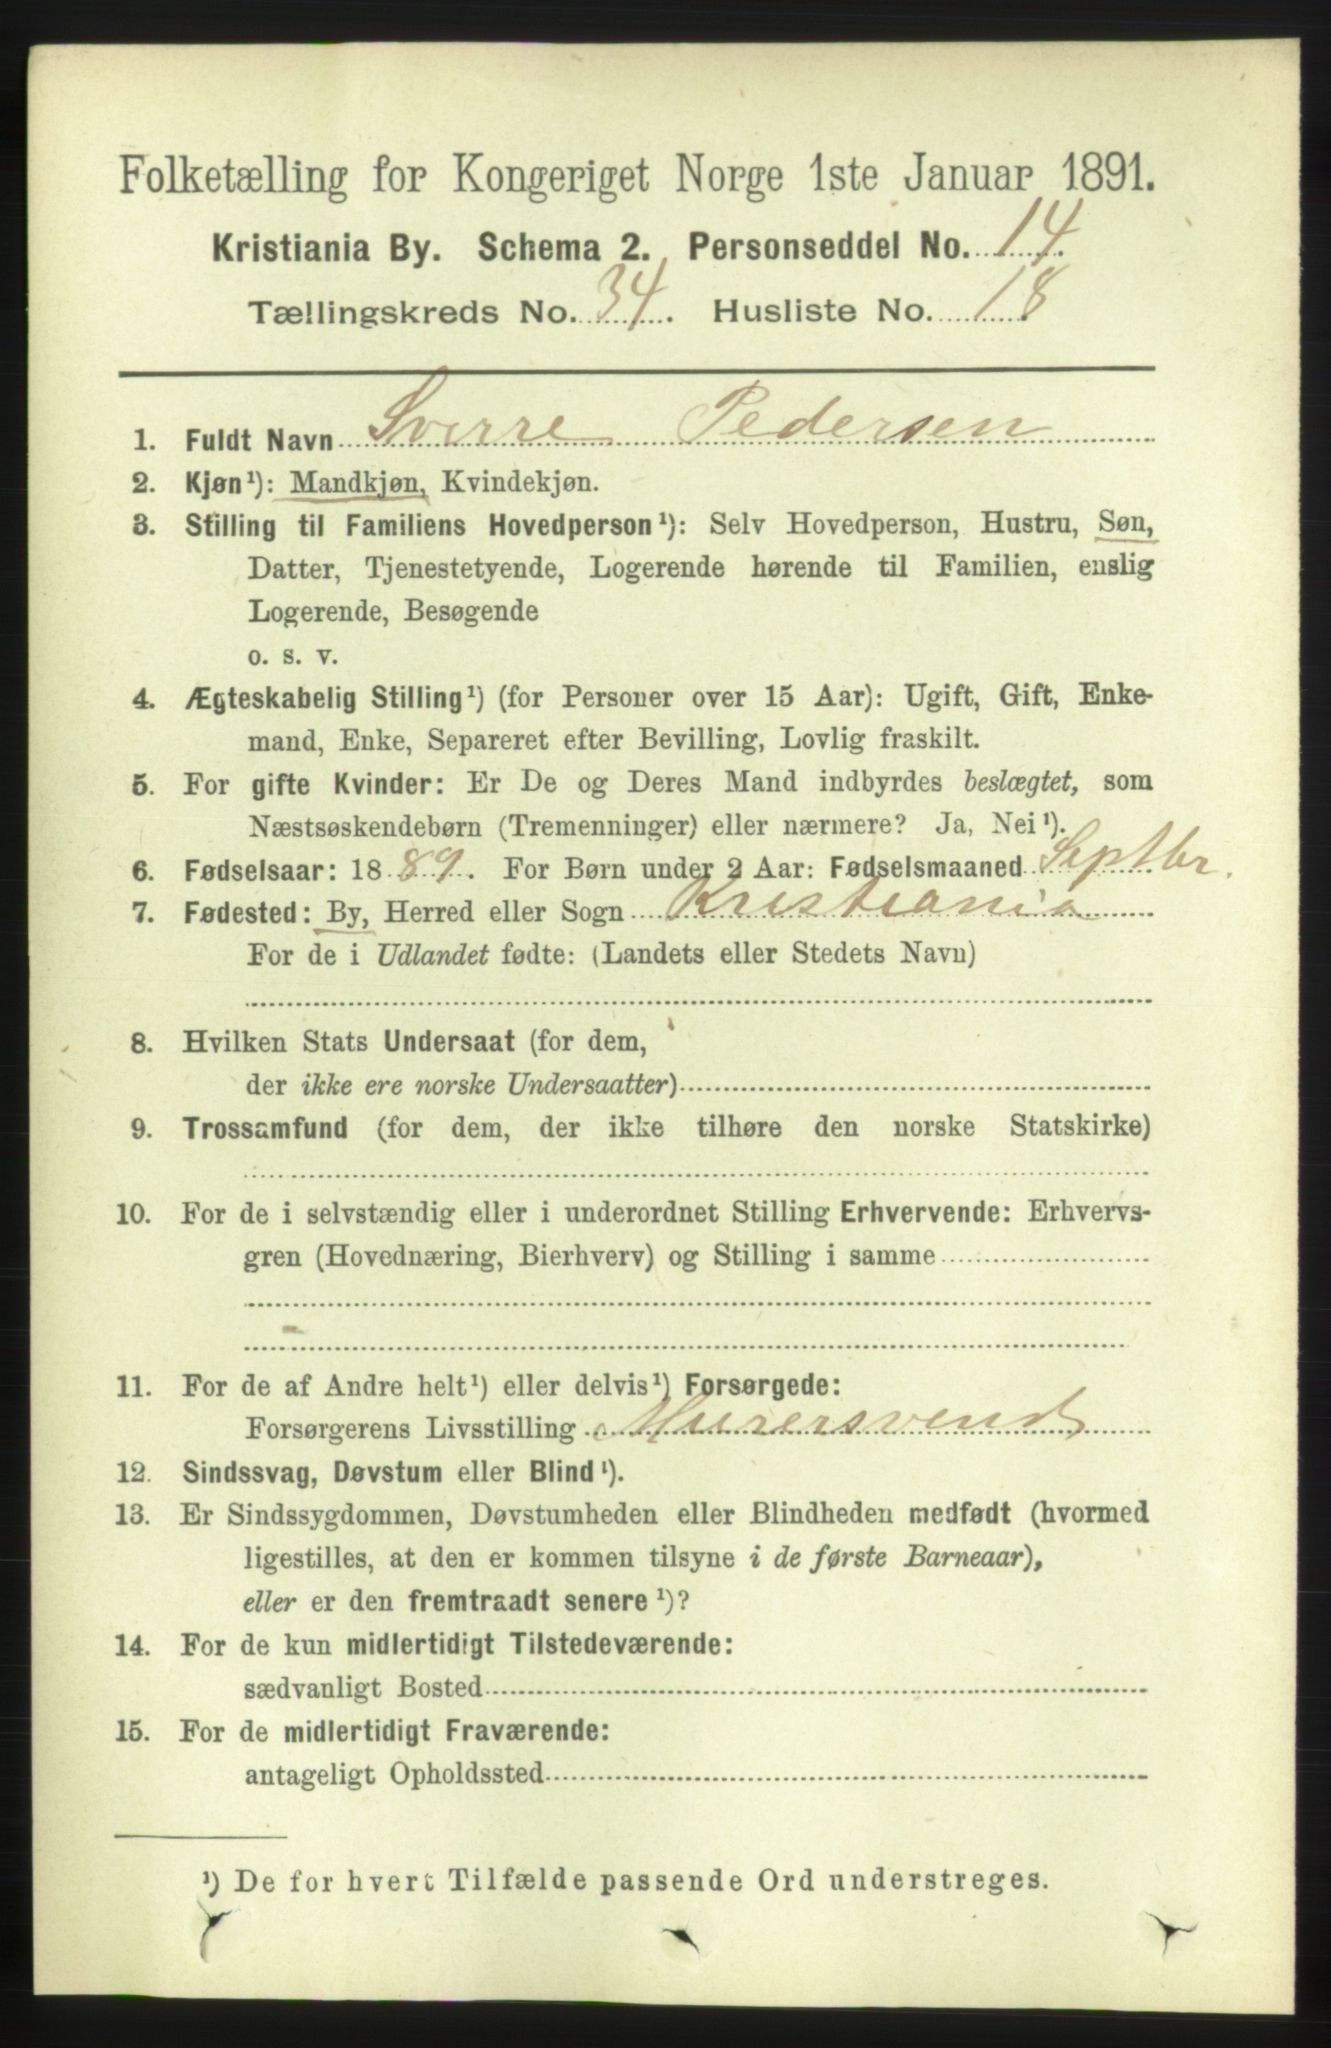 Folketælling for Kongeriget Norge 1ste Januar 1891.
Kristiania By. Schema 2. Personseddel No. 14.
Tællingskreds No. 34. Husliste No. 18
1. Fuldt Navn Sverre Pedersen
2. Kjøn¹): Mandkjøn, Kvindekjøn.
3. Stilling til Familiens Hovedperson¹): Selv Hovedperson, Hustru, Søn,
Datter, Tjenestetyende, Logerende hørende til Familien, enslig
Logerende, Besøgende
o. s. v.
4. Ægteskabelig Stilling¹) (for Personer over 15 Aar): Ugift, Gift, Enke-
mand, Enke, Separeret efter Bevilling, Lovlig fraskilt.
5. For gifte Kvinder: Er De og Deres Mand indbyrdes beslægtet, som
Næstsøskendebørn (Tremenninger) eller nærmere? Ja, Nei¹).
6. Fødselsaar: 1889. For Børn under 2 Aar: Fødselsmaaned Septbr.
7. Fødested: By, Herred eller Sogn Kristiania
For de i Udlandet fødte: (Landets eller Stedets Navn)
8. Hvilken Stats Undersaat (for dem,
der ikke ere norske Undersaatter)
9. Trossamfund (for dem, der ikke tilhøre den norske Statskirke)
10. For de i selvstændig eller i underordnet Stilling Erhvervende: Erhvervs-
gren (Hovednæring, Bierhverv) og Stilling i samme
11. For de af Andre helt¹) eller delvis¹) Forsørgede:
Forsørgerens Livsstilling Murersvend
12. Sindssvag, Døvstum eller Blind¹).
13. Er Sindssygdommen, Døvstumheden eller Blindheden medfødt (hvormed
ligestilles, at den er kommen tilsyne i de første Barneaar),
eller er den fremtraadt senere¹)?
14. For de kun midlertidigt Tilstedeværende:
sædvanligt Bosted
15. For de midlertidigt Fraværende:
antageligt Opholdssted
¹) De for hvert Tilfælde passende Ord understreges.